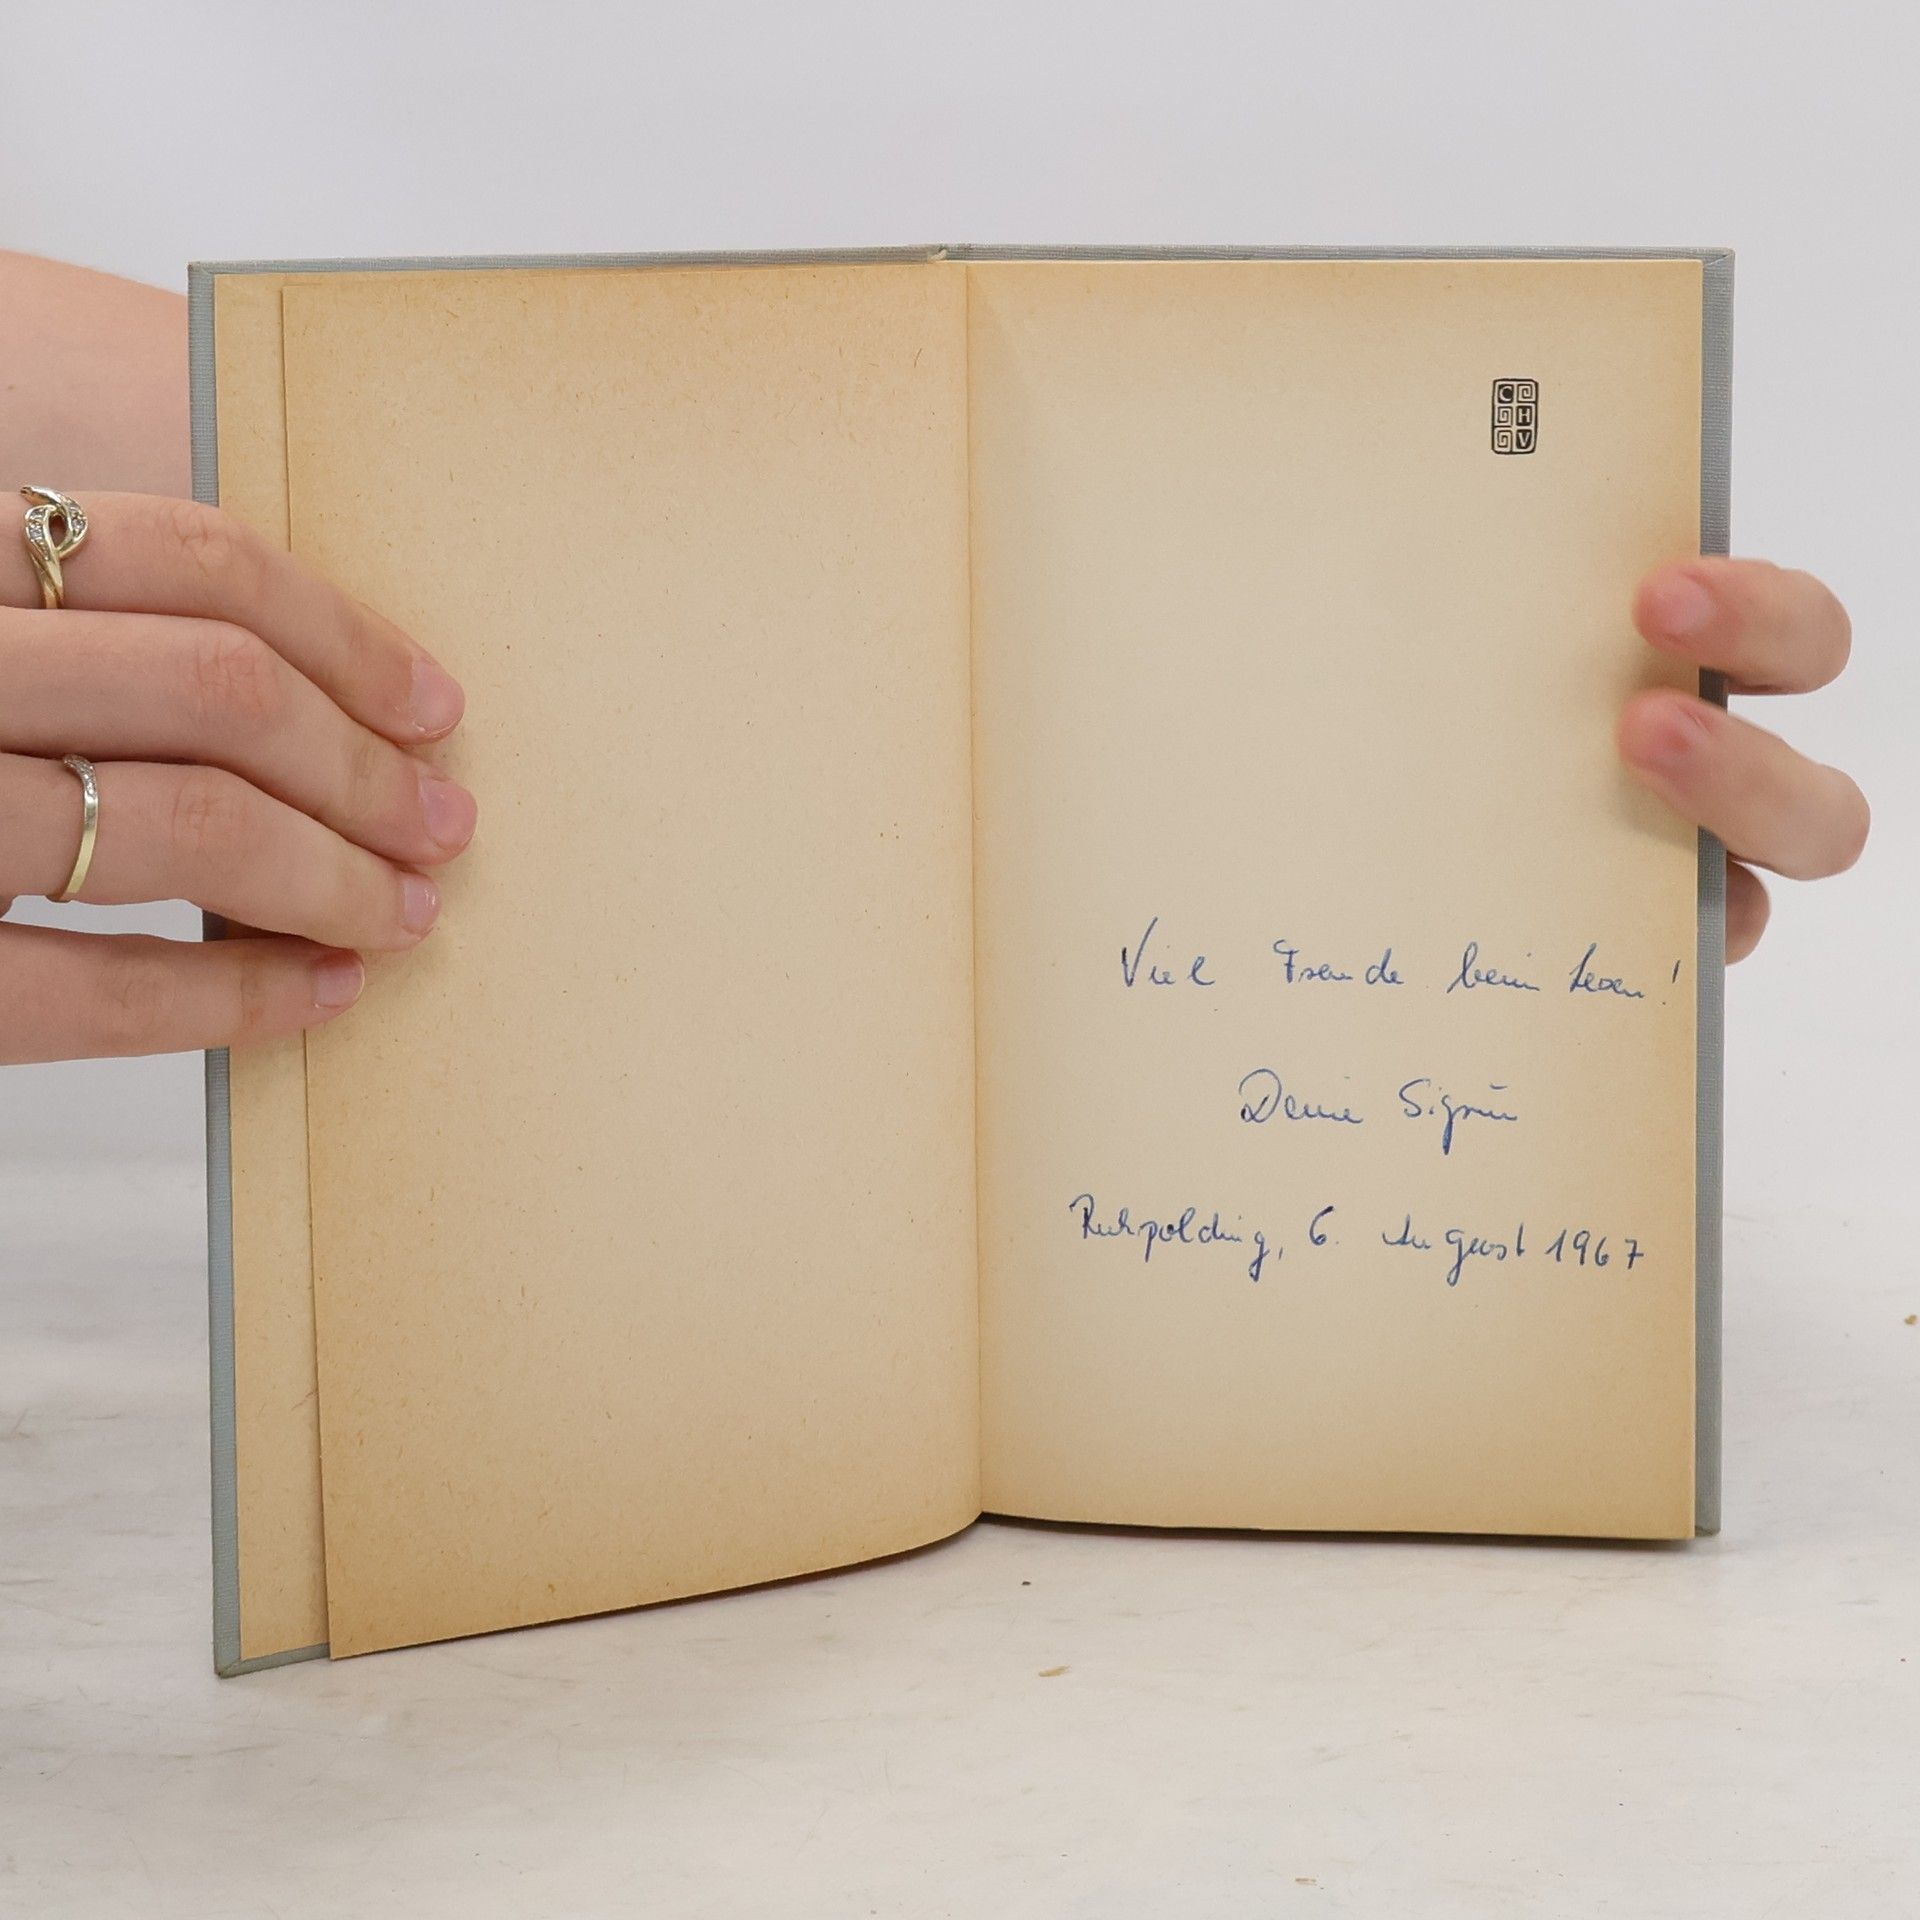 C
H
V
Viel Freude beim Lesen!
Deine Sigrun
Ruhpolding, 6. August 1967